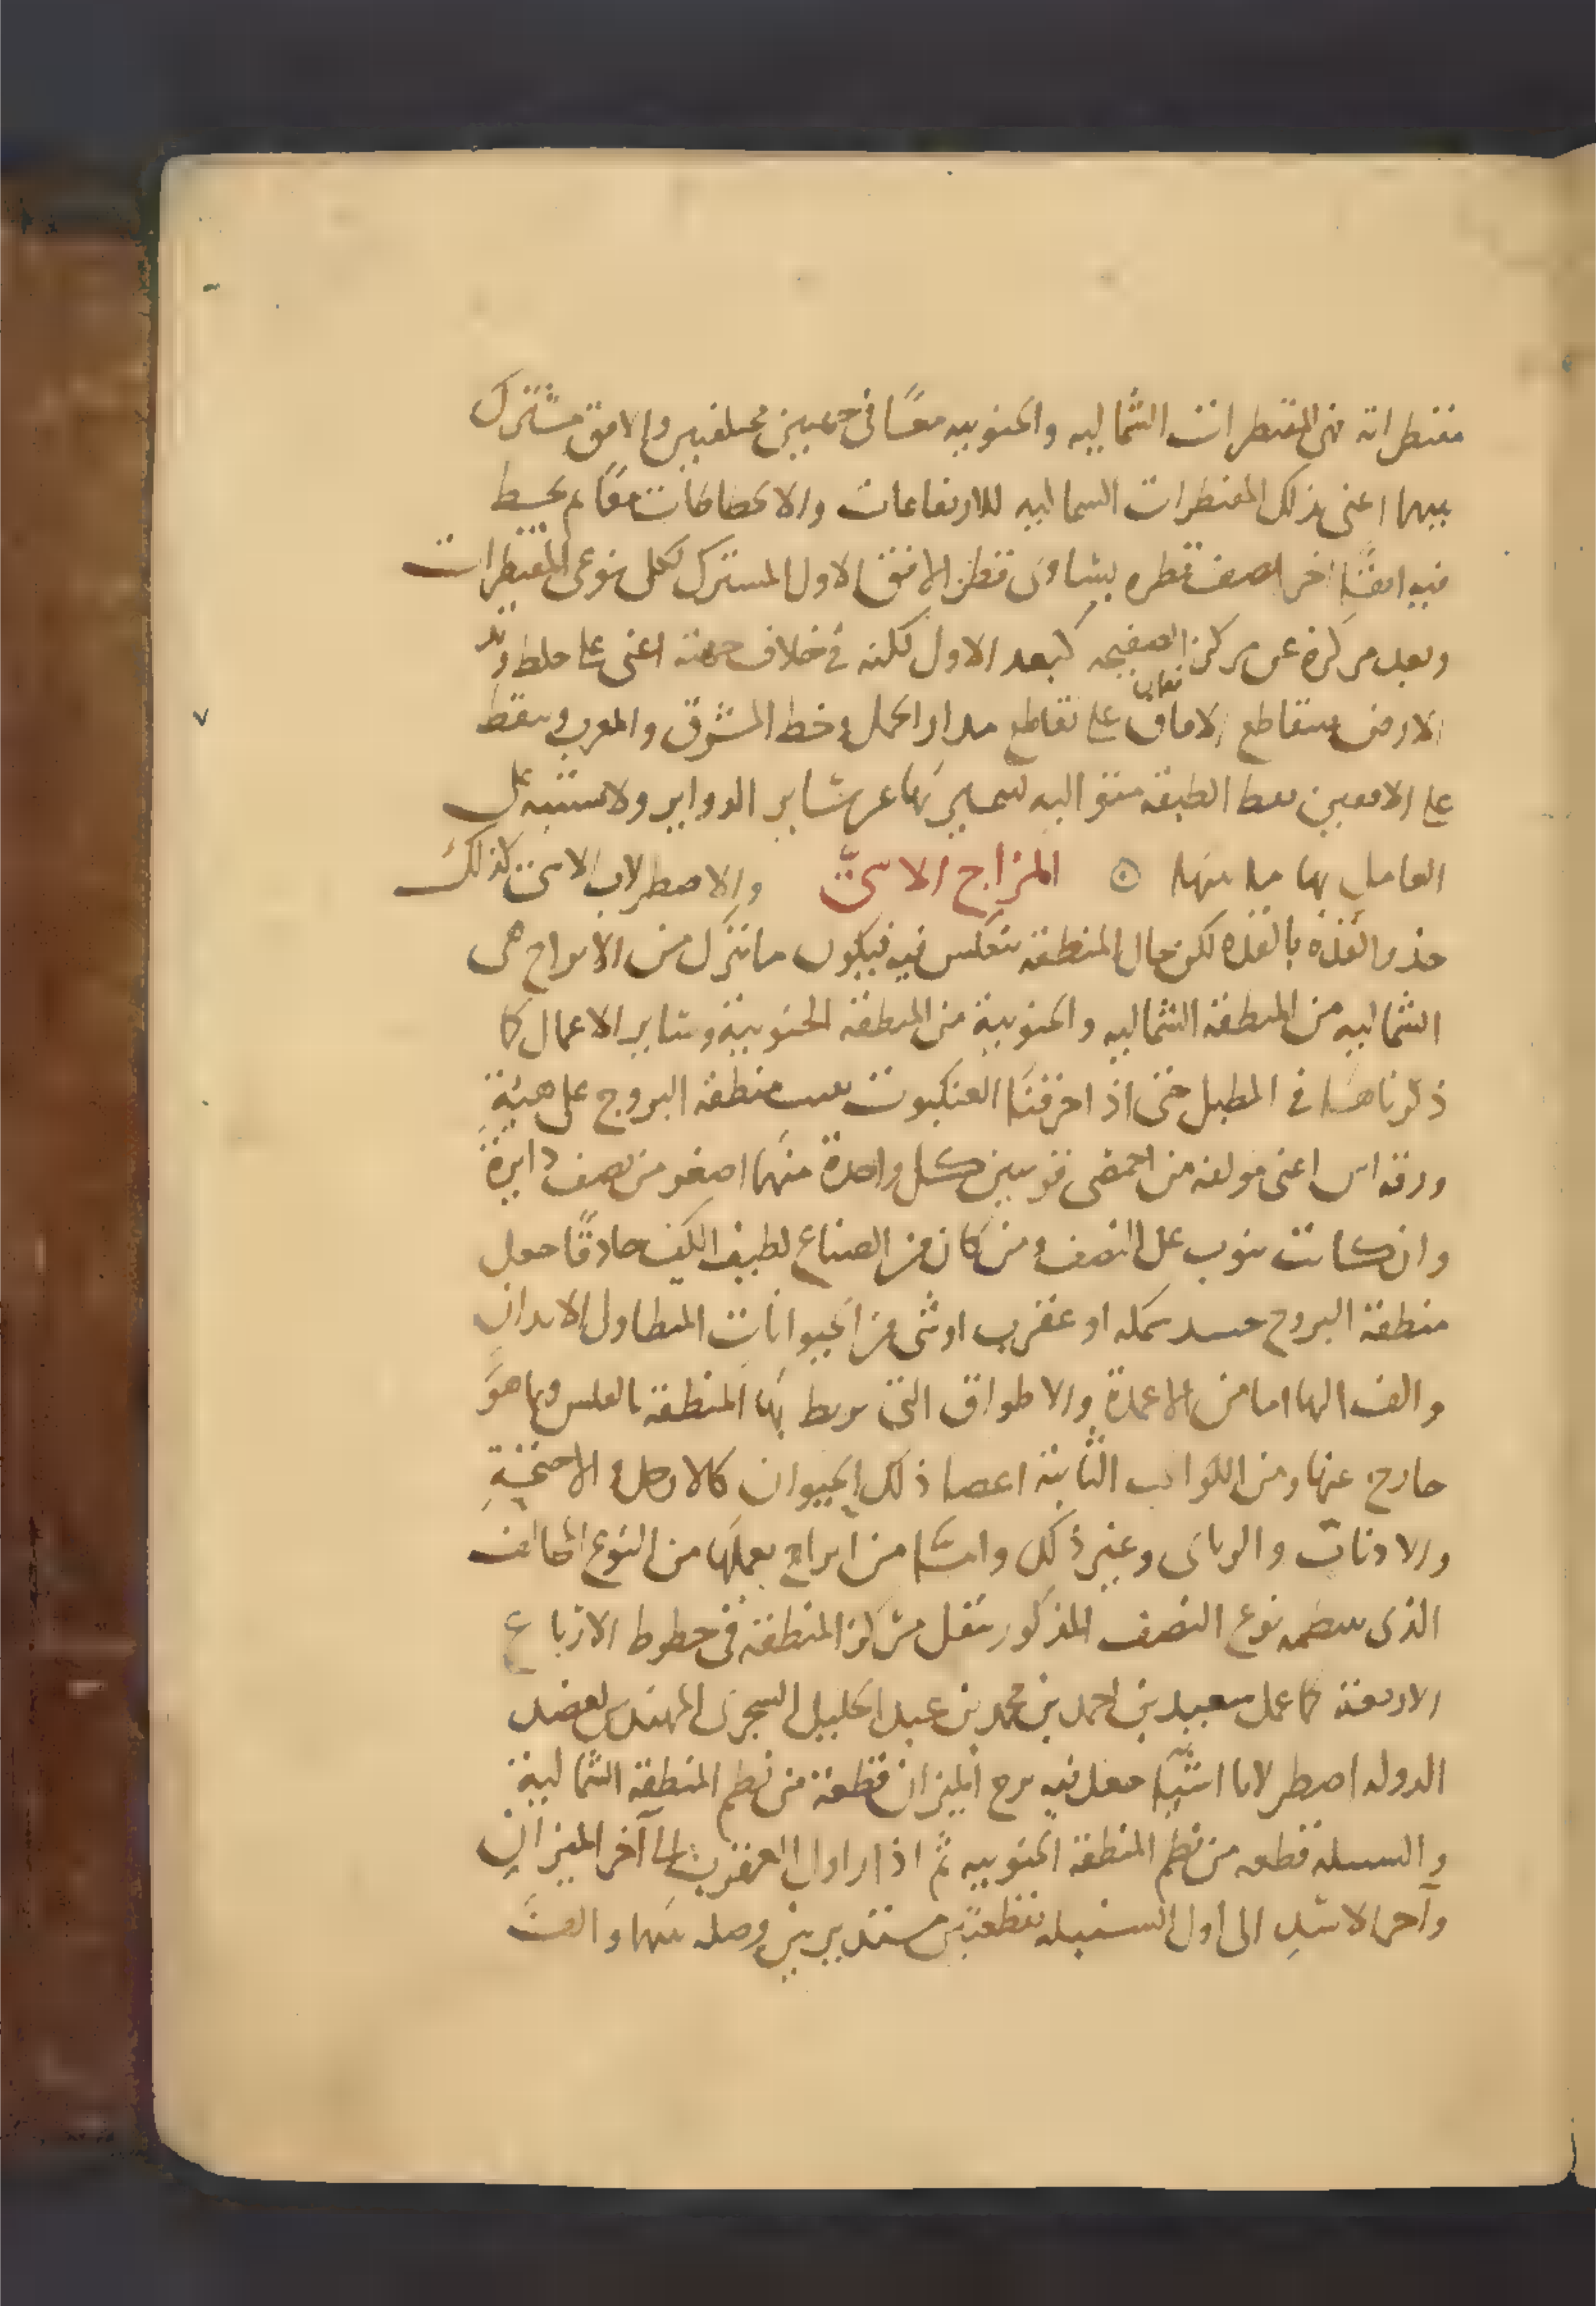 مقنطراته فمن المقنطرات الشماليه والجنوبيه معًا فى جهتين مختلفتين والافق مشترك
بينهما اعنى بذلك المقنطرات الشماليه للارتفاعات والانحطاطات معًا ثم يخط
فيه افقًا اخر نصف قطره يساوى قطر الافق الاول المشترك لكل نوعى المقنطرات
وبعد مركزه عن مركز الصفيحه كبعد الاول لكنه فى خلاف جهته اعنى على خط وتد
الارض فيتقاطع الافاق على تقاطع مدار الحمل وخط المشرق والمغرب وينقط
على الافقين نقط الطبقه متواليه ليتميز بها عن ساير الدواير ولا يشتبه على
العامل بها ما بينها ⊙ المزاج الاسىّ والاصطرلاب الاسى كذلك
حذو القذه بالقذه لكن حال المنطقة ينعكس فيه فيكون ما نزل من الابراج هى
الشماليه من المنطقة الشماليه والجنوبية من المنطقة الجنوبية وساير الاعمال كما
ذكرناها فى المطبل حتى اذا خرقنا العنكبوت منطقة البروج على هيئة
ورقة اس اعنى مولفه من اخمصى قوسين كل واحدة منهما اصغر من نصف دايرة
وان كانت تنوب عن النصف ومن كان من الصناع لطيف الكف حاذقًا جعل
منطقة البروج جسد سمكه او عقرب او شى من الحيوانات المتطاول الابدان
والف اليها اما من الاعمدة والاطواق التى يربط بها المنطقة بالفلس وما هو
خارج عنها ومن الكواكب الثابتة اعضا ذلك الحيوان كالارجل والاجنحة
والاذناب والزبانى وغير ذلك وامسا من ابراج يعملها من النوع المخالف
الذى ينظمه نوع النصف المذكور بنقل مركز المنطقة فى خطوط الارباع
الاربعة كما عمل سعيد بن احمد بن محمد بن عبد الجليل السجزى المهندس لعضد
الدوله اصطرلابا اسيًّا جعل فيه برج الميزان قطعة من نظم المنطقة الشمالية
والسنبله قطعه من نظم المنطقة الجنوبيه ثم ادار اول العقرب الى آخر الميزان
وآخر الاسد الى اول السنبله بقطعتين مستديرتين وصله بينهما والف